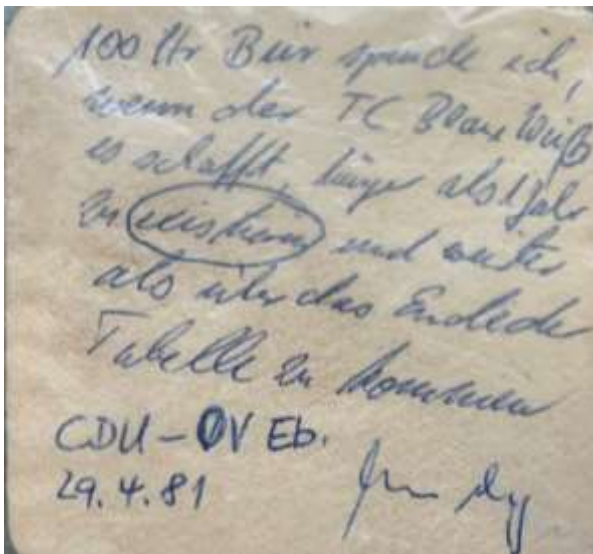 100 ltr Bier spende ich,
wenn der TC Blau Weiß
es schafft, länger als 1 Jahr
zu existieren und weiter
als über das Ende der
Tabelle zu kommen
CDU-OV Eb.
29.4.81